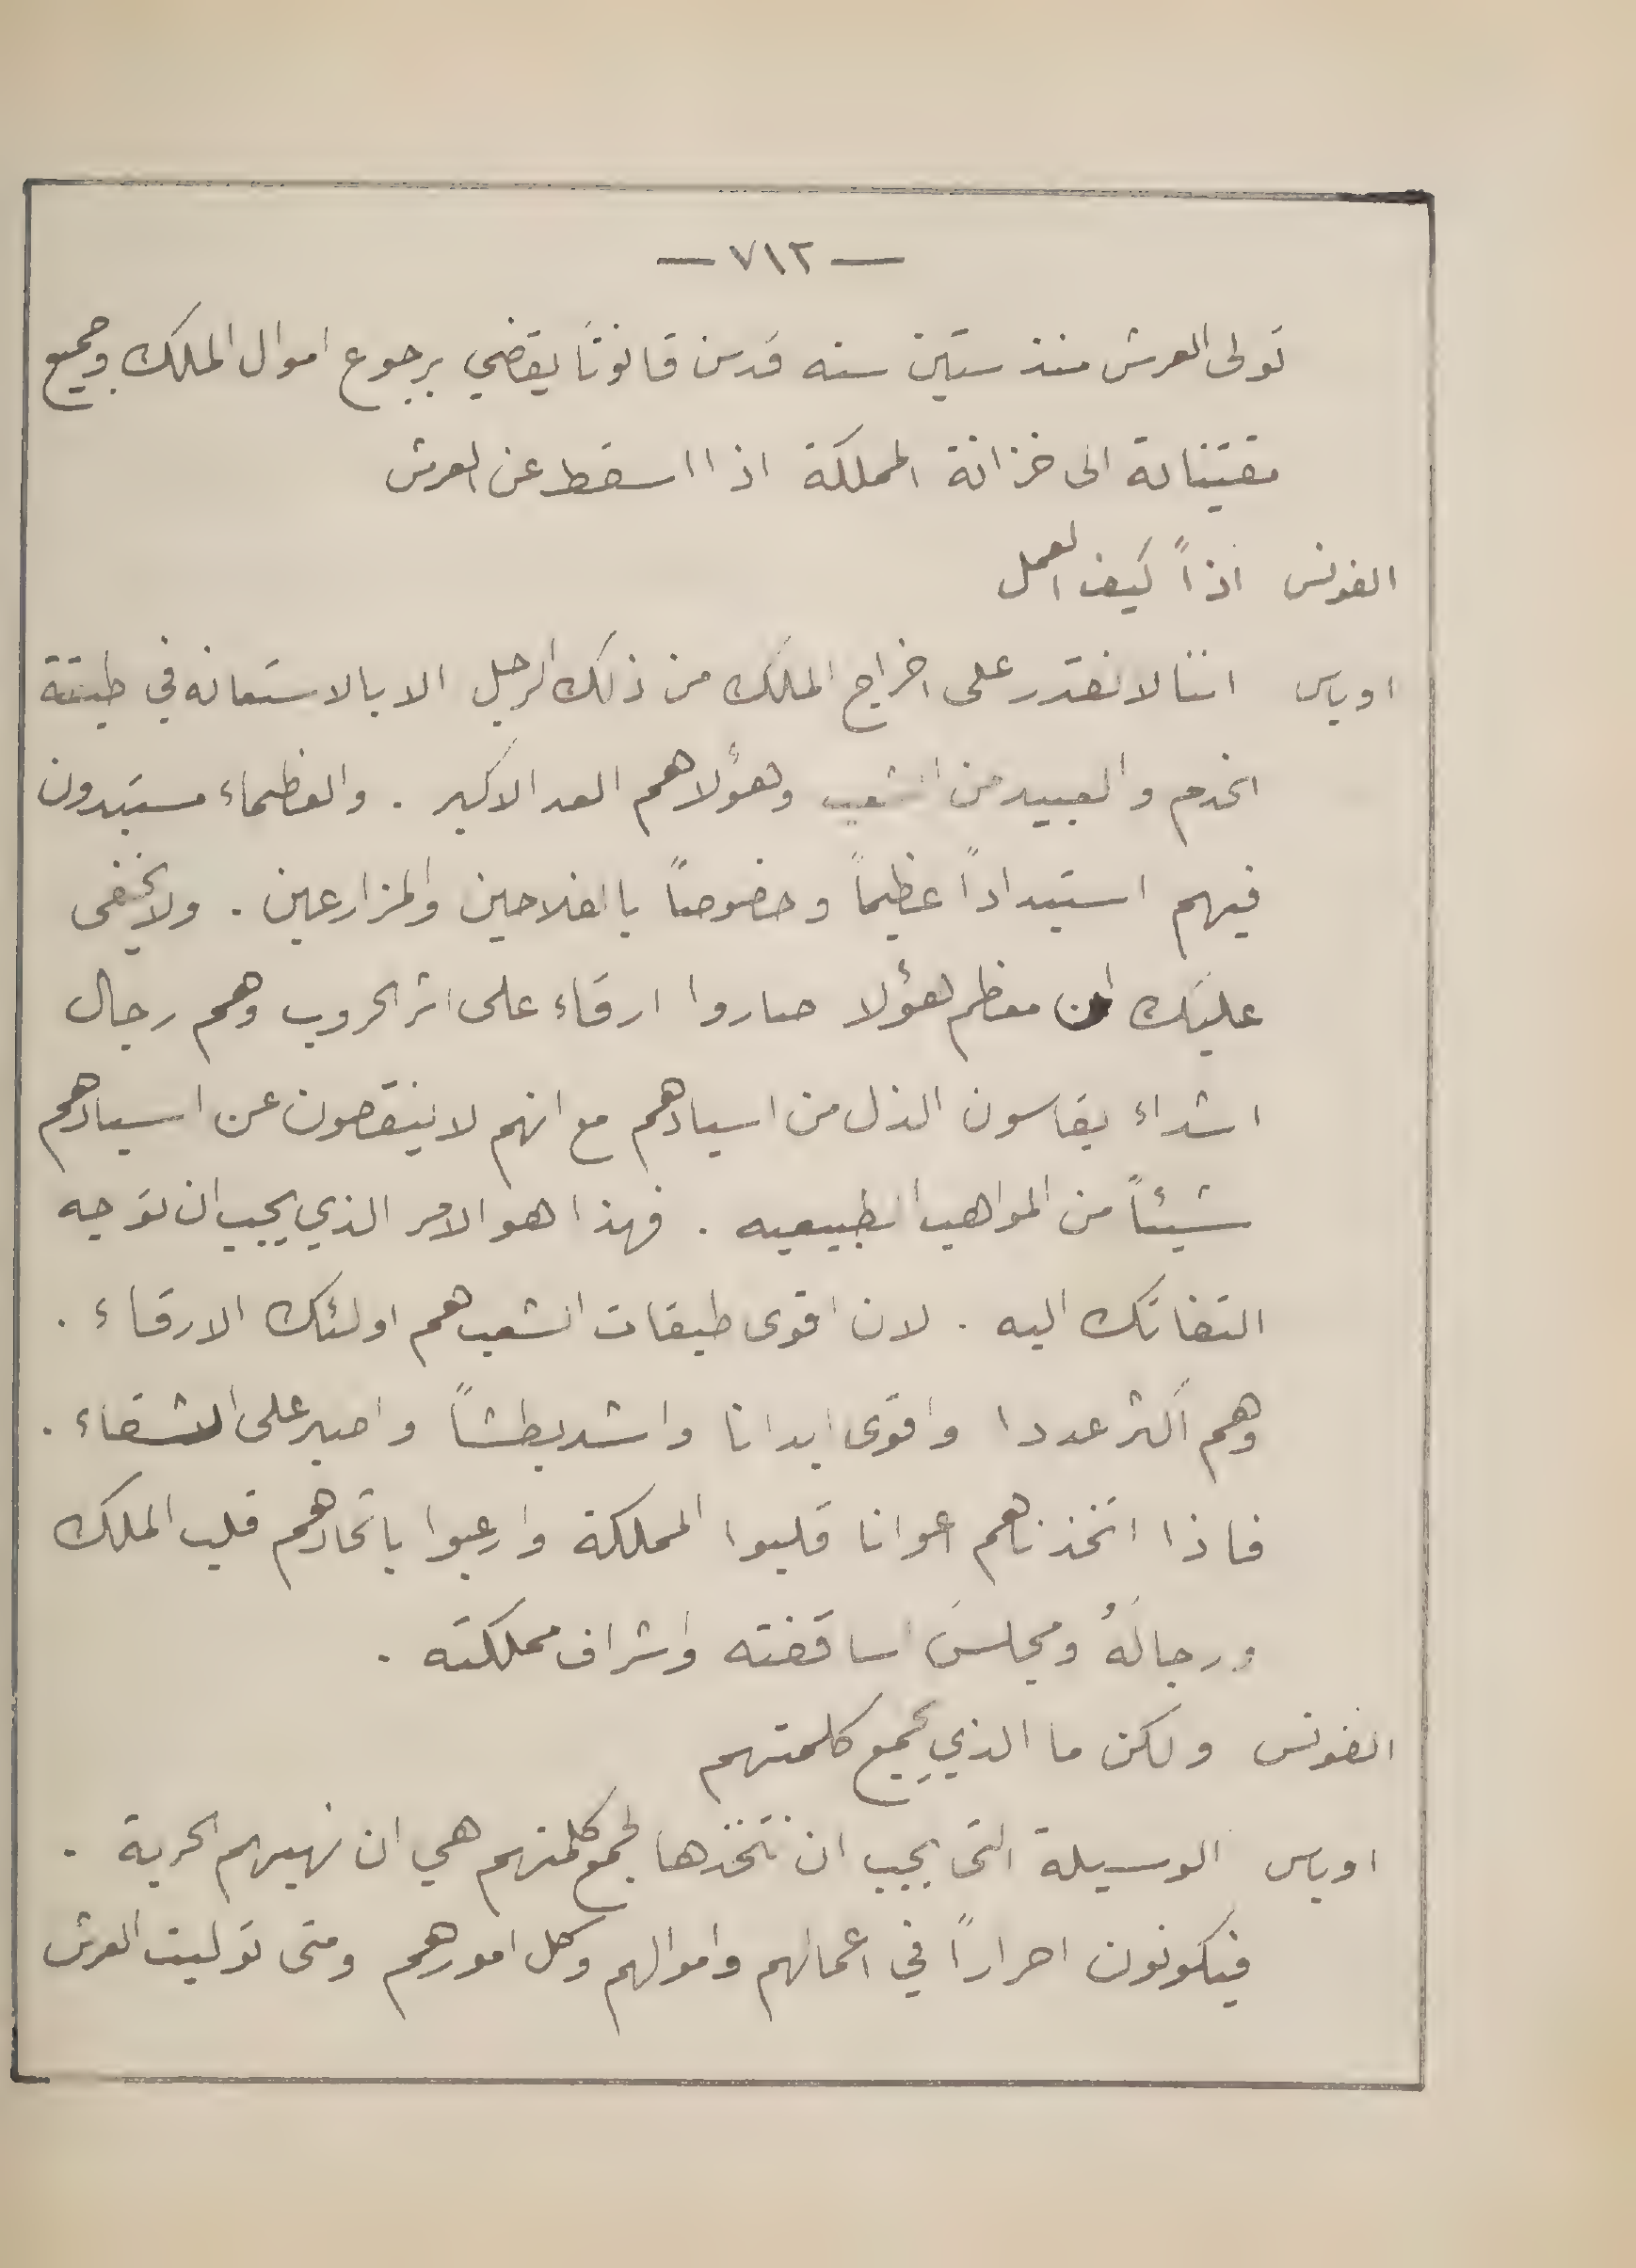 — ٧١٢ —
تولى العرش منذ ستين سنه قد سن قانوناً يقضي برجوع اموال الملك وجميع
مقتناته الى خزانة المملكة اذا اسقط عن العرش
الفونس اذاً كيف العمل
اوباس اننا لا نقدر على اخراج الملك من ذلك الرجل الا بالاستعانه في طبقة
الخدم والعبيد من الشعب وهؤلا هم العد الاكبر . والعظماء مستبدون
فيهم استبداداً عظيماً وخصوصاً بالفلاحين والمزارعين . ولا يخفى
عليك ان معظم هؤلا صاروا ارقاء على اثر الحروب وهم رجال
اشداء يقاسون الذل من اسيادهم مع انهم لا ينقصون عن اسيادهم
شيئاً من المواهب الطبيعيه . فهذا هو الامر الذي يجب ان توجه
التفاتك اليه . لان اقوى طبقات الشعب هم اولئك الارقاء .
وهم اكثر عددا واقوى ابدانا واشد بطشاً واصبر على الشقاء .
فاذا اتخذناهم اعوانا قلبوا المملكة وارعبوا باتحادهم قلب الملك
ورجالَهُ ومجلسَ اساقفته واشراف مملكته .
الفونس ولكن ما الذي يجمع كلمتهم
اوباس الوسيلة التى يجب ان نتخذها لجمع كلمتهم هي ان نهبهم الحرية .
فيكونون احراراً في اعمالهم واموالهم وكل امورهم ومتى توليت العرش